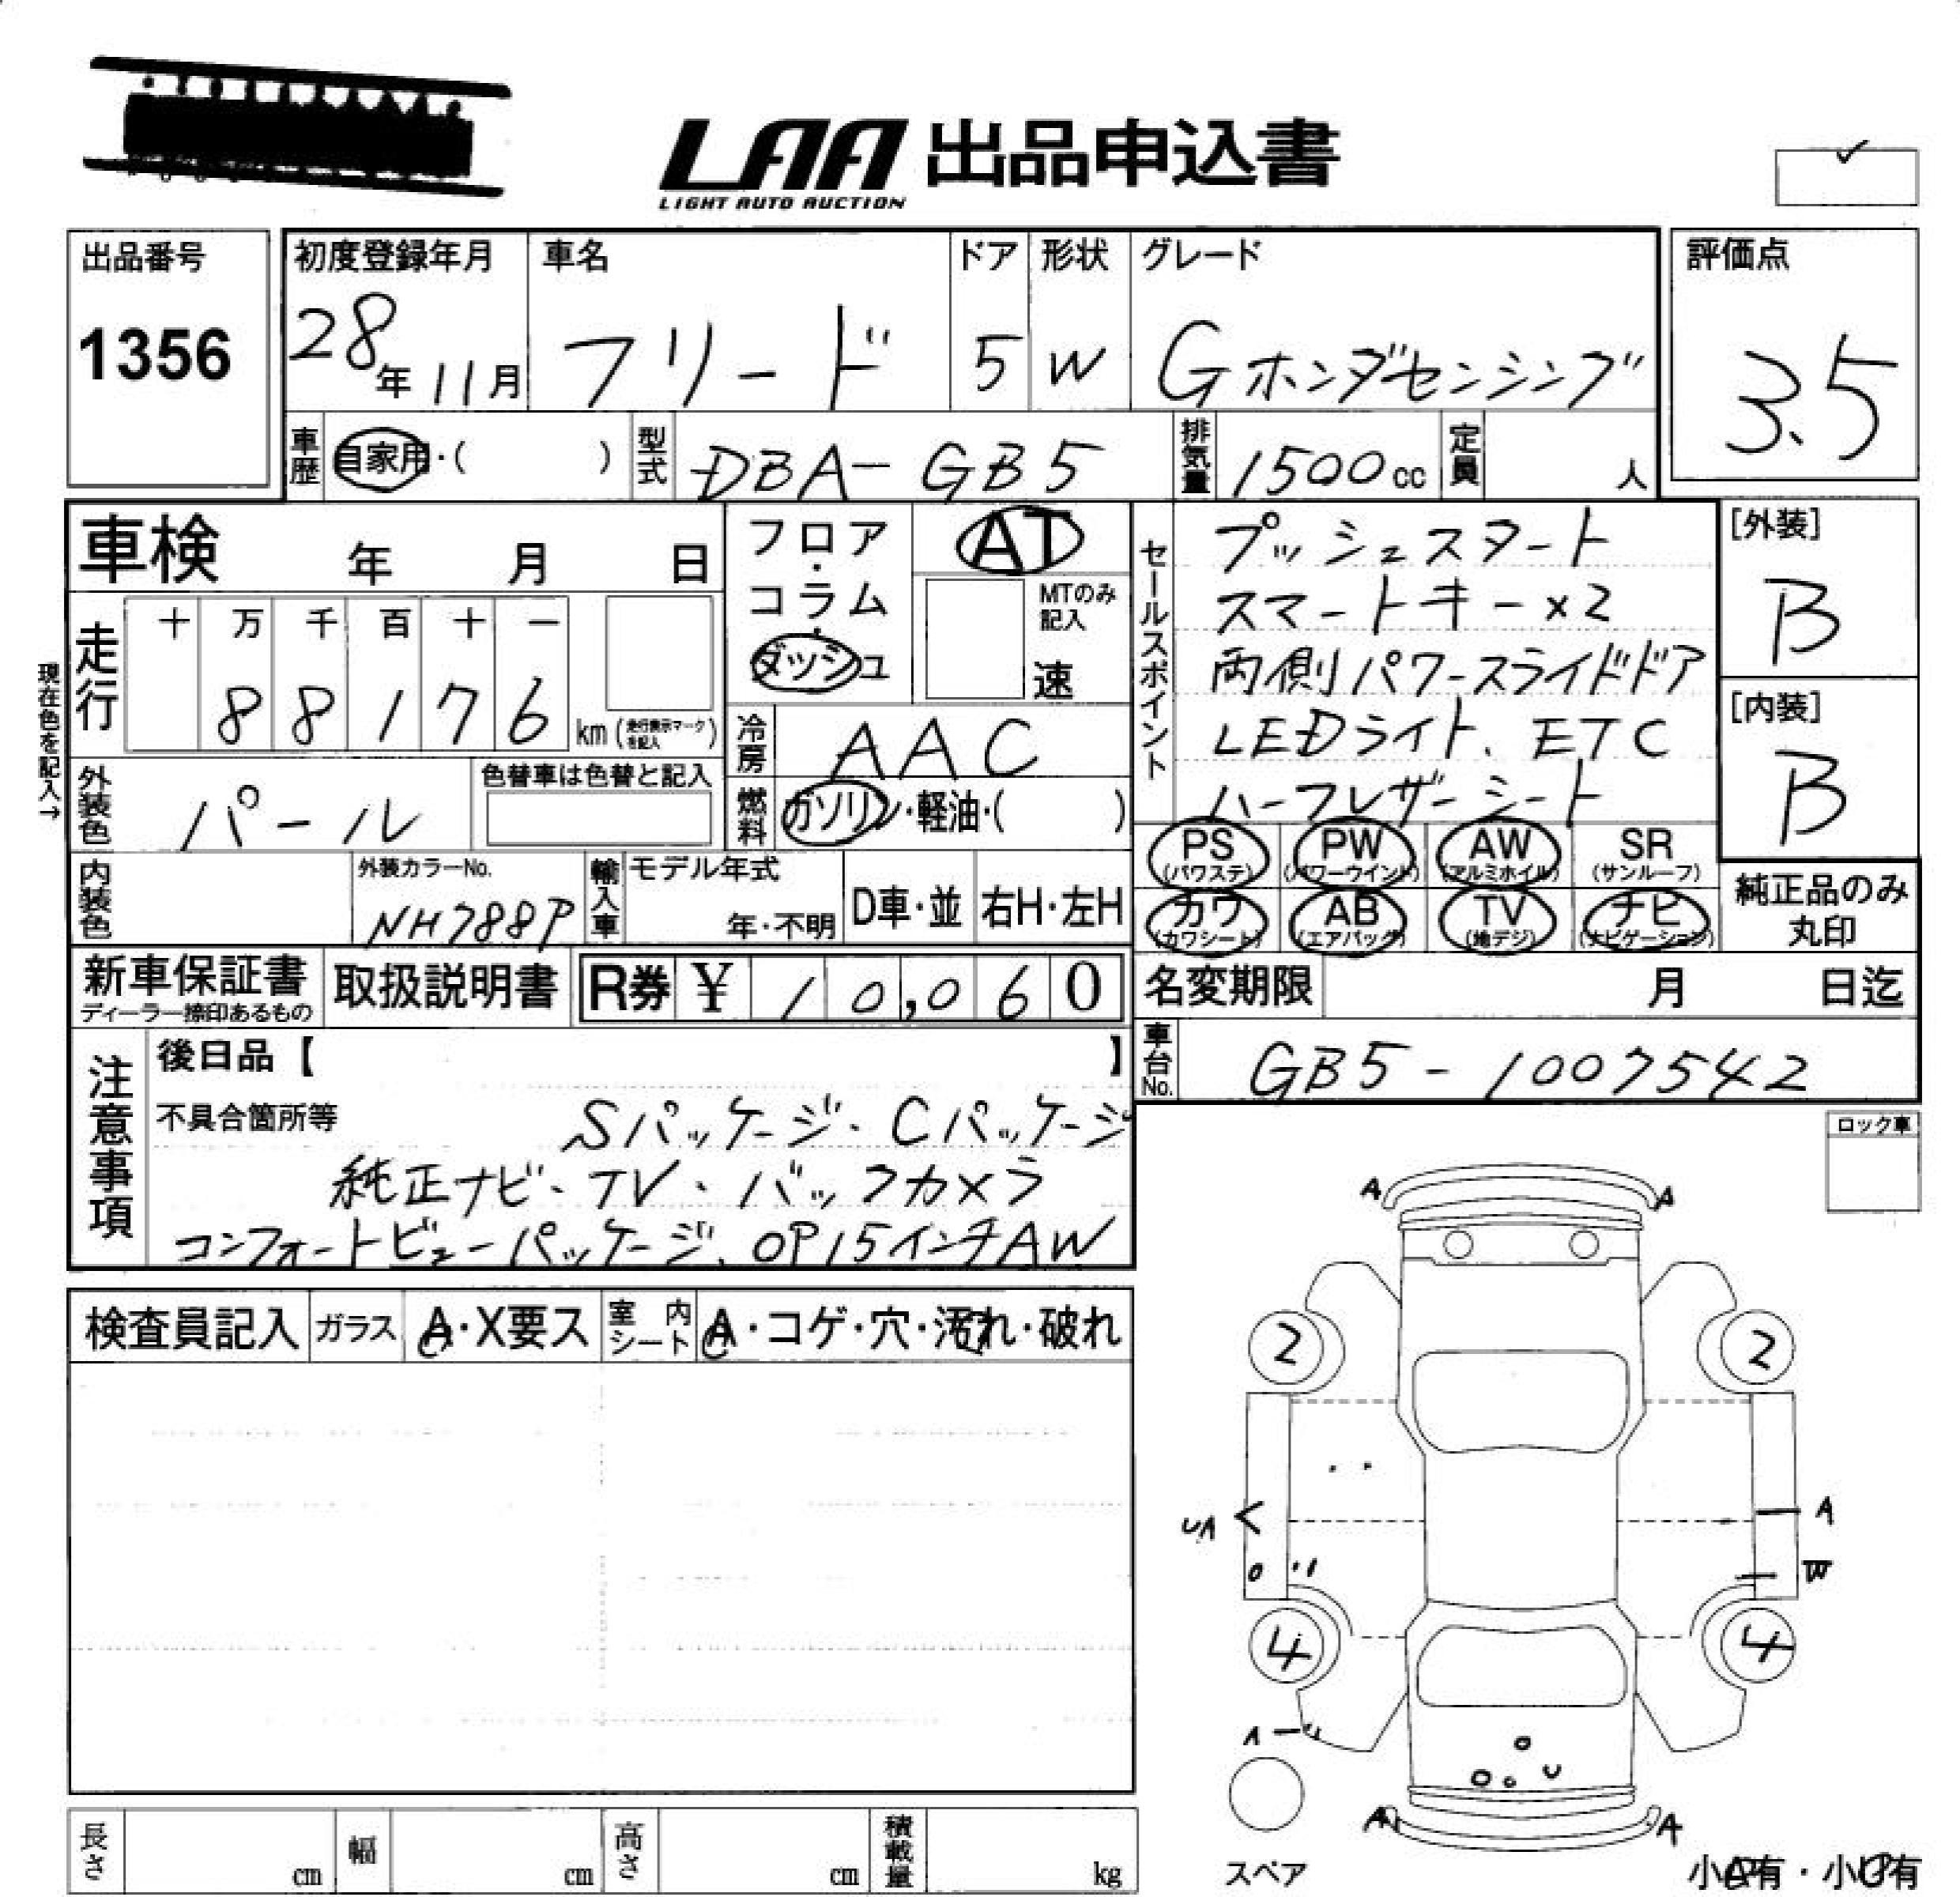 LAA 出品申込書
LIGHT AUTO AUCTION
出品番号
1356
初度登録年月
28年11月
車名
フリード
ドア
5
形状
W
グレード
Gホンダセンシング
評価点
3.5
車歴
自家用・( )
型式
DBA-GB5
排気量
1500cc
定員
人
車検 年 月 日
現在色を記入→
走行
十 万 千 百 十 一
88176
km(走行表示マークを記入)
フロア・コラム・ダッシュ
AT
MTのみ記入
速
セールスポイント
プッシュスタート
スマートキー×2
両側パワースライドドア
LEDライト、ETC
ハーフレザーシート
[外装]
B
[内装]
B
外装色
パール
色替車は色替と記入
冷房
AAC
燃料
ガソリン・軽油・( )
内装色
外装カラーNo.
NH788P
輸入車
モデル年式
年・不明
D車・並
右H・左H
PS
(パワステ)
PW
(パワーウインド)
AW
(アルミホイル)
SR
(サンルーフ)
カワ
(カワシート)
AB
(エアバッグ)
TV
(地デジ)
ナビ
(ナビゲーション)
純正品のみ
丸印
新車保証書
ディーラー捺印あるもの
取扱説明書
R券 ¥ 10,060
名変期限 月 日迄
車台No.
GB5-1007542
注意事項
後日品【 】
不具合箇所等
Sパッケージ、Cパッケージ
純正ナビ、TV、バックカメラ
コンフォートビューパッケージ、OP15インチAW
ロック車
検査員記入
ガラス
A・X要ス
室内シート
A・コゲ・穴・汚れ・破れ
A A
2 2
A
W
4 4
A A
スペア
小A有・小U有
長さ cm
幅 cm
高さ cm
積載量 kg